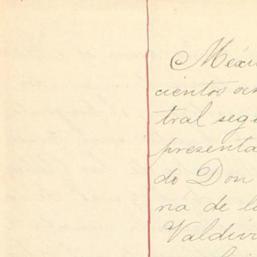 Méxi
cientos oc
tral segu
presenta
do Don
ria de la
Valdivi